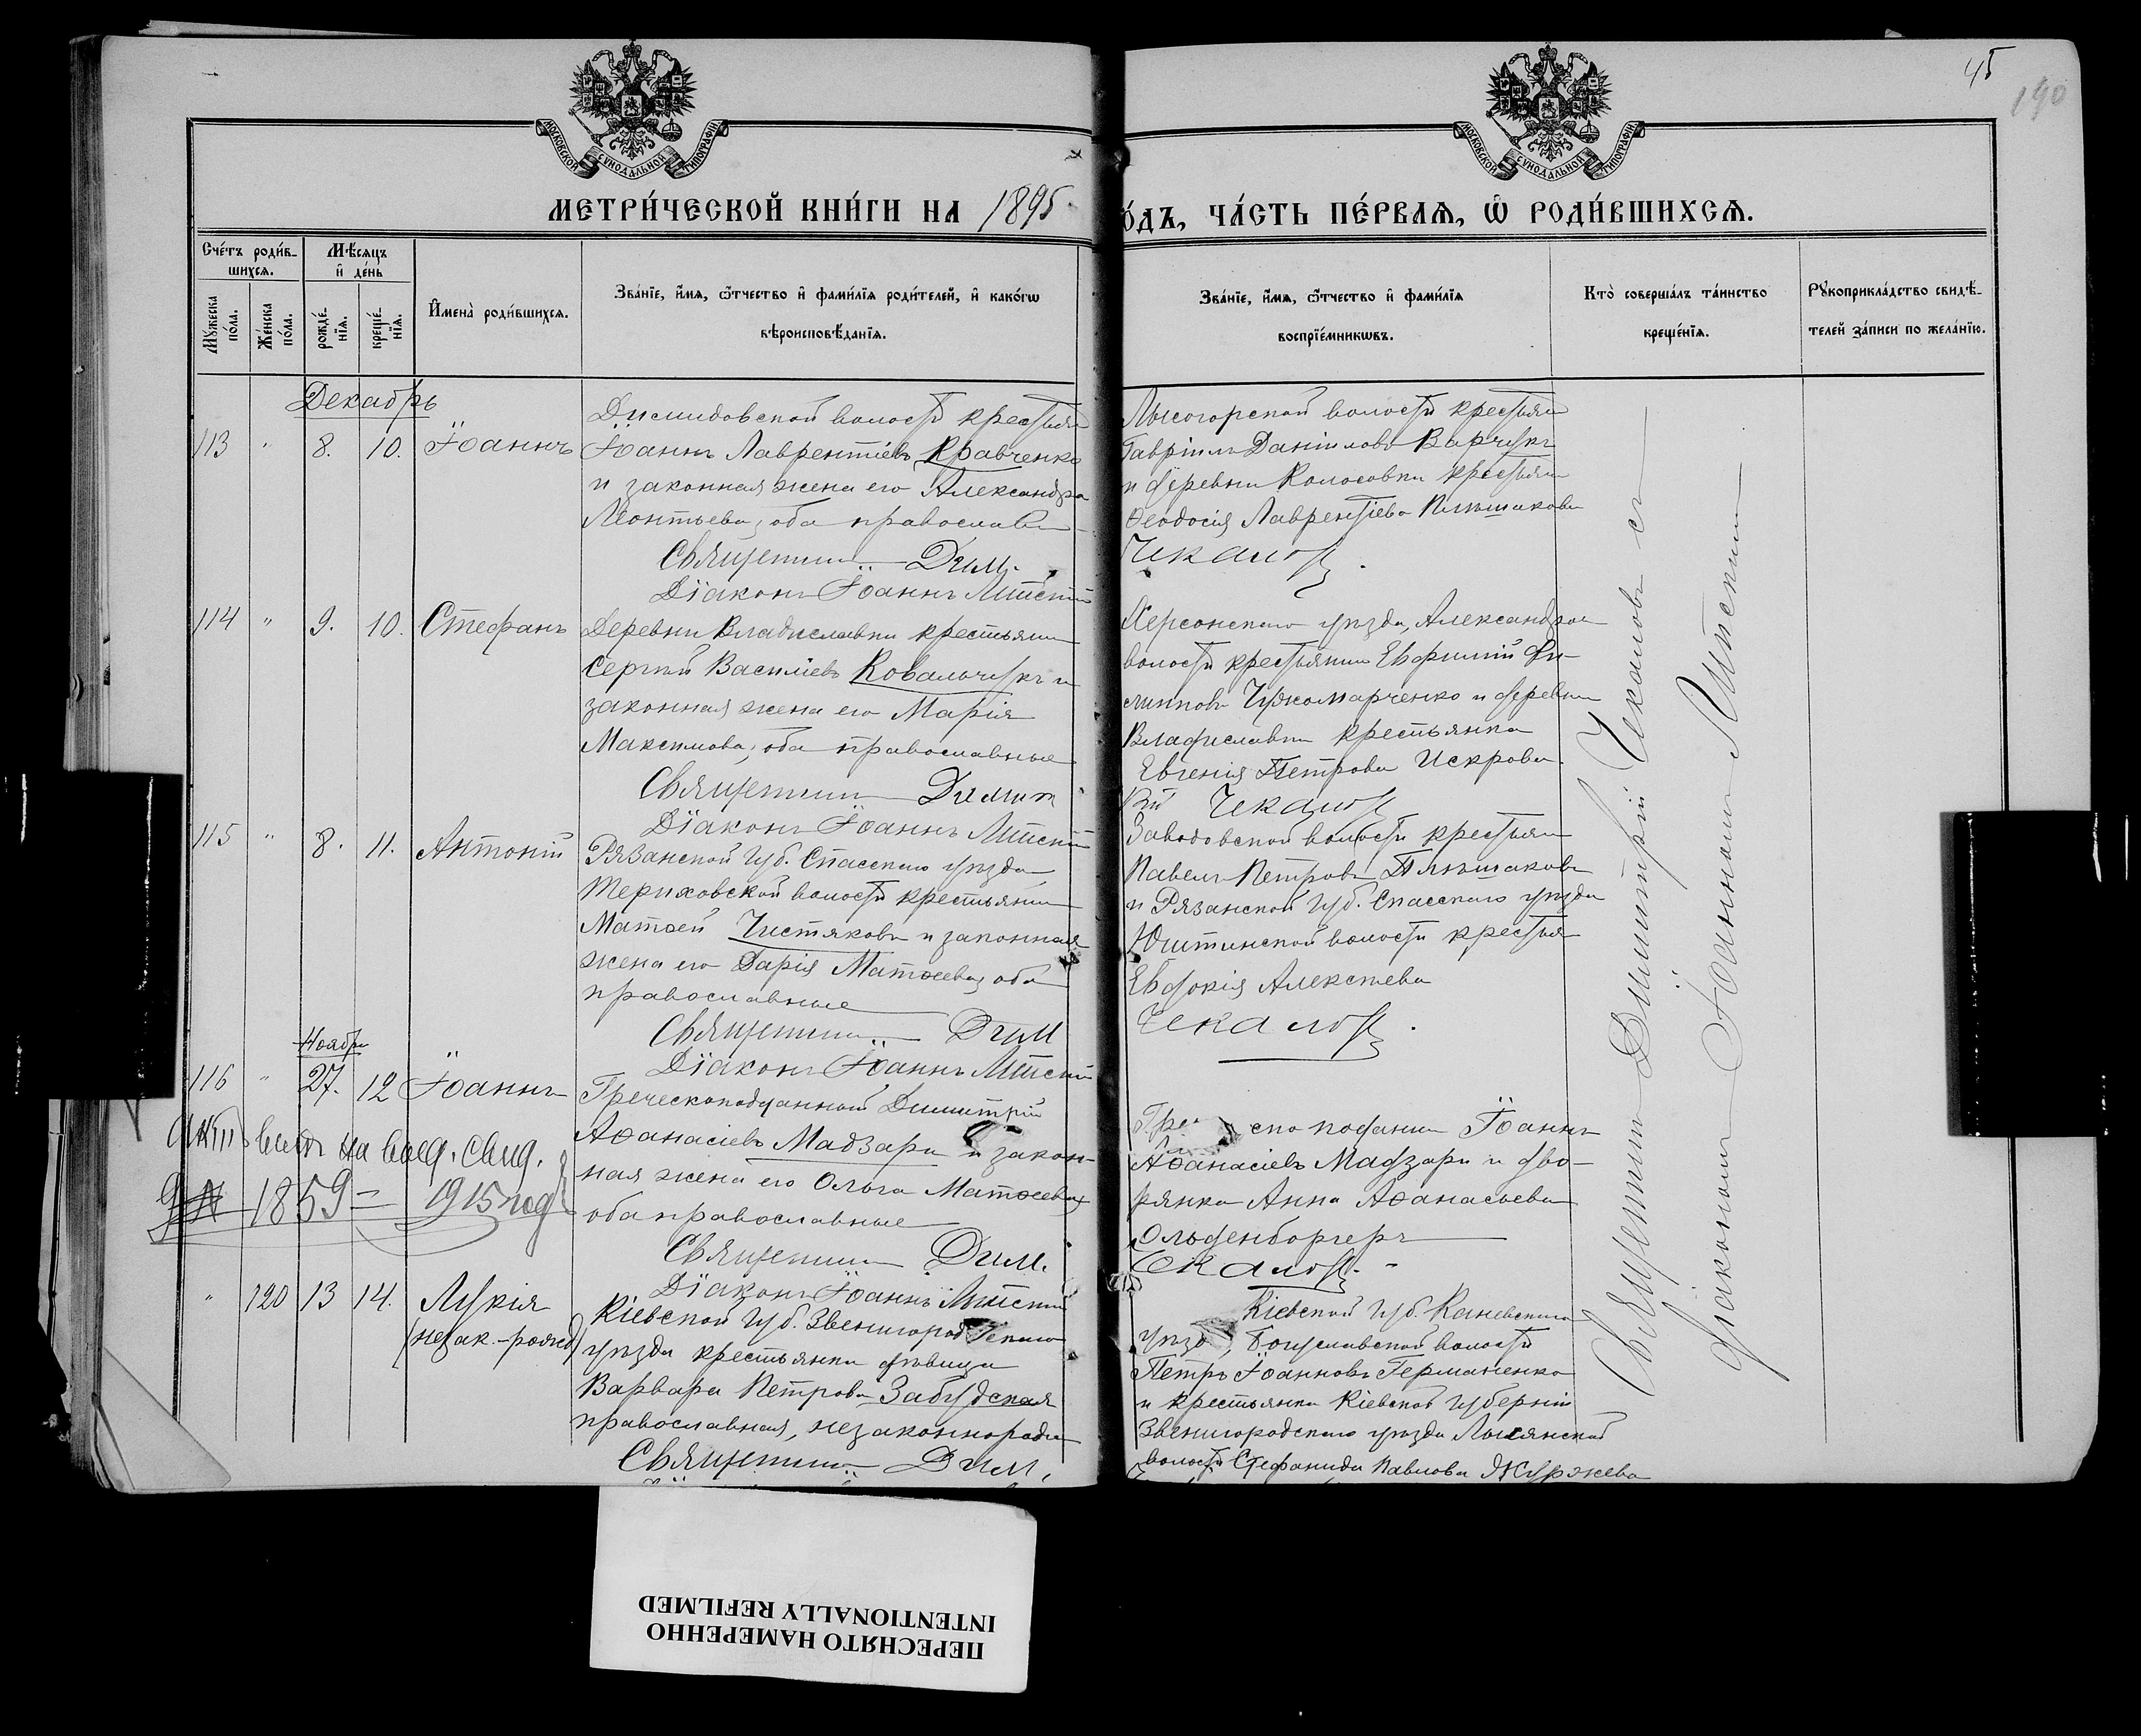 45
190
МОСКОВСКОЙ СУНОДАЛЬНОЙ ТИПОГРАФІИ
МОСКОВСКОЙ СУНОДАЛЬНОЙ ТИПОГРАФІИ
МЕТРИ́ЧЕСКОЙ КНИ́ГИ НА 1895
О́ДЪ, ЧА́СТЬ ПЕ́РВАѦ, Ѡ҆ РОДИ́ВШИХСѦ.
Сче́тъ роди́в-
шихсѧ.
Мꙋжеска по́ла.
Же́нска по́ла.
Мѣсѧцъ
и҆ де́нь
рожде́-
нїѧ.
креще́-
нїѧ.
И҆мена̀ роди́вшихсѧ.
Зва́нїе, и҆́мѧ, ѻ҆́тчество и҆ фами́лїѧ роди́телей, и҆ како́гѡ
вѣроисповѣ́данїѧ.
Зва́нїе, и҆́мѧ, ѻ҆́тчество и҆ фами́лїѧ
воспрїе́мникѡвъ.
Кто̀ соверша́лъ та́инство
креще́нїѧ.
Рꙋкоприкла́дство свидѣ́-
телей за́писи по жела́нїю.
Декабрь
113 " 8. 10. Іоаннъ
Іоаннъ Лаврентіевъ Кравченко
и законная жена его Александра
Леонтьева, оба православн
Священникъ Дим.
Діаконъ Іоаннъ
Лысогорской волости крестьян
Гавріилъ Даніиловъ Варчукъ
и деревни Колосовки крестьян
Ѳеодосія Лаврентіева
Чекалов
114 " 9. 10. Стефанъ
Деревни Владиславки крестьянин
Сергій Василіевъ Ковальчукъ и
законная жена его Марія
Максимова, оба православные
Священникъ Димит
Діаконъ Іоаннъ
Херсонскаго уѣзда, Александров
волости крестьянин Евфимій Фи-
липповъ и деревни
Владиславки крестьянка
Евгенія Петрова Искрова
рій Чекалов
115 " 8. 11. Антоній
Рязанской губ. Спасскаго уѣзда
Териховской волости крестьянин
Матѳей Чистяковъ и законная
жена его Дарія Матѳеева, оба
православные
Священникъ Дим
Діаконъ Іоаннъ
Заводовской волости крестьян
Павелъ Петровъ
и Рязанской губ. Спасскаго уѣзда
волости крестьян
Евдокія Алексѣева
Чекалов
Ноябрь
116 " 27. 12 Іоаннъ
Греческоподданный Димитрій
Аѳанасіевъ Мадзари и закон-
ная жена его Ольга Матѳеева,
оба православные
Священникъ Дим.
Діаконъ Іоаннъ
Аѳанасіевъ Мадзари и дво-
рянка Анна Аѳанасьева
Ольденборгеръ
Чекалов
1859 = 1915 год
" 120 13 14. Лукія
(незак.-рожд)
Кіевской губ. Звенигородскаго
уѣзда крестьянка дѣвица
Варвара Петрова Забудская
православная, незаконнорожд
Священникъ Дим.
Кіевской губ. Каневскаго
уѣзд Богуславской волости
Петръ Іоанновъ Германенко
и крестьянка Кіевской губерніи
Звенигородскаго уѣзда Лысянской
волости Стефанида Павлова
Священникъ Димитрій Чекаловъ съ
діакономъ Іоанномъ
ПЕРЕСНЯТО НАМЕРЕННО
INTENTIONALLY REFILMED